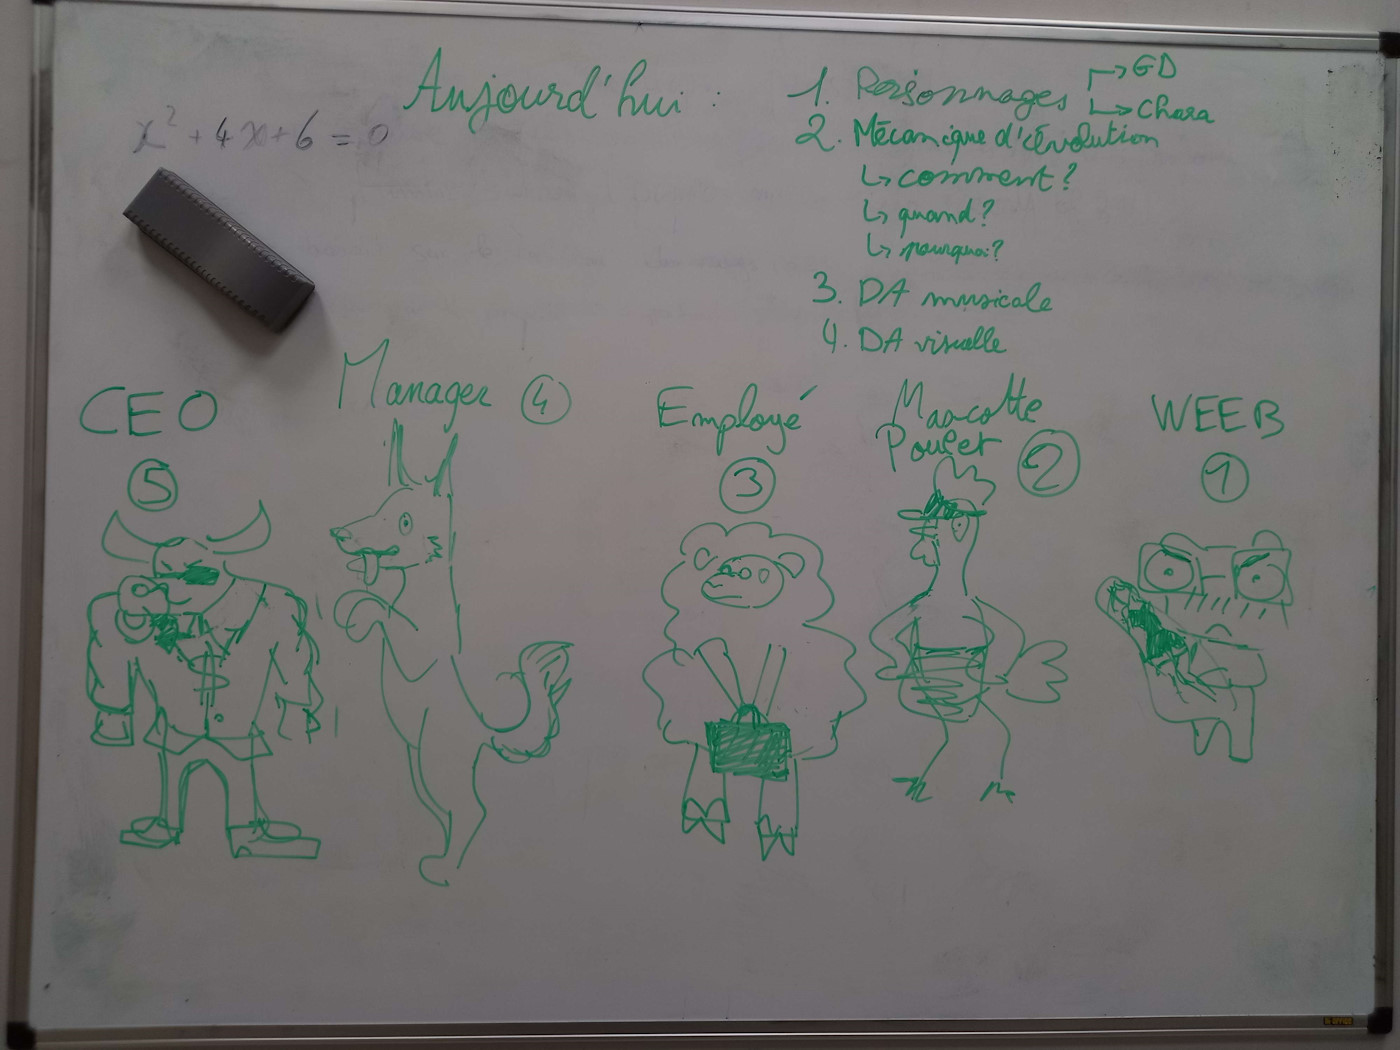 Aujourd'hui :
x² + 4x + 6 = 0
1. Personnages
→ GD
→ Chara
2. Mécanique d'évolution
↳ comment ?
↳ quand ?
↳ pourquoi ?
3. DA musicale
4. DA visuelle
CEO
5
Manager 4
Employé
3
Mascotte
Poulet 2
WEEB
1
$